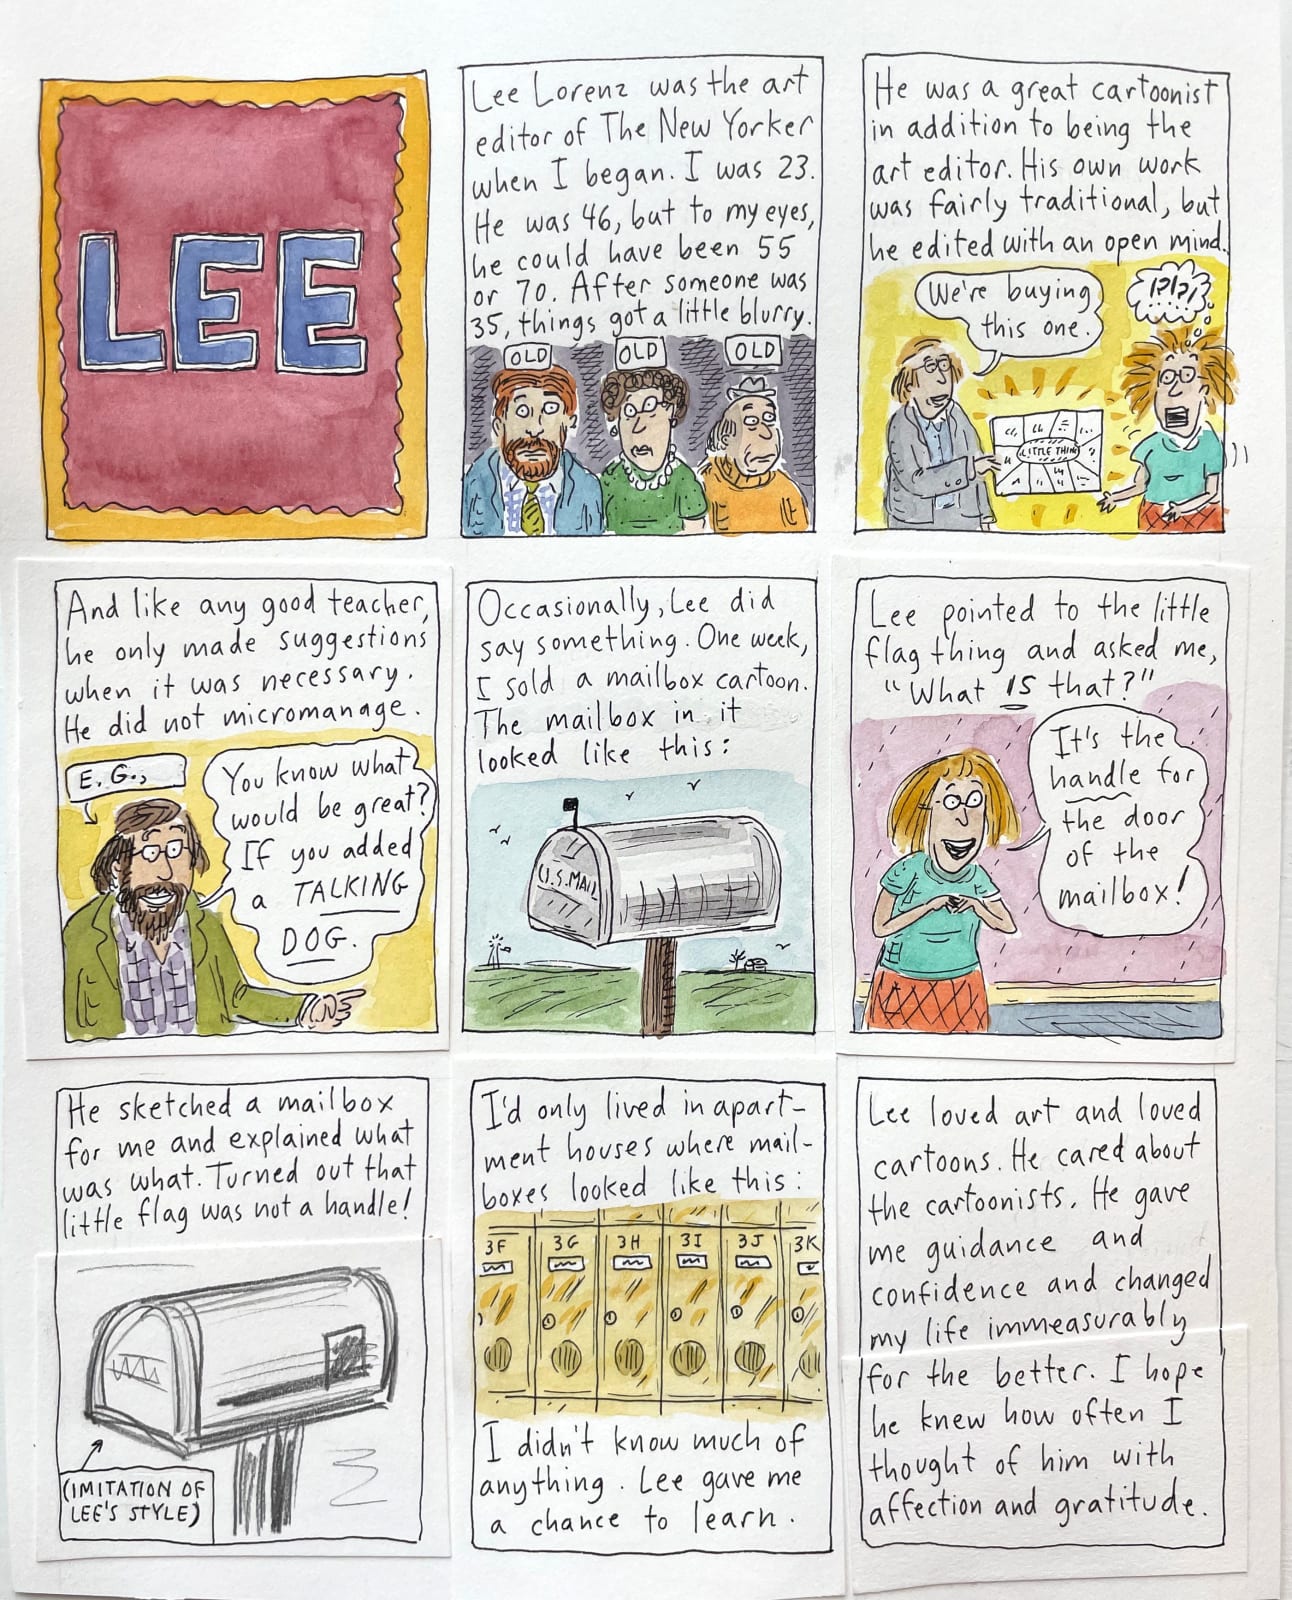 LEE
Lee Lorenz was the art
editor of The New Yorker
when I began. I was 23.
He was 46, but to my eyes,
he could have been 55
or 70. After someone was
35, things got a little blurry.
OLD
OLD
OLD
He was a great cartoonist
in addition to being the
art editor. His own work
was fairly traditional, but
he edited with an open mind.
We're buying
this one.
!?!?/
LITTLE THIN
And like any good teacher,
he only made suggestions
when it was necessary.
He did not micromanage.
E.G.,
You know what
would be great?
If you added
a TALKING
DOG.
Occasionally, Lee did
say something. One week,
I sold a mailbox cartoon.
The mailbox in it
looked like this:
U.S. MAIL
Lee pointed to the little
flag thing and asked me,
"What IS that?"
It's the
handle for
the door
of the
mailbox!
He sketched a mailbox
for me and explained what
was what. Turned out that
little flag was not a handle!
(IMITATION OF
LEE'S STYLE)
I'd only lived in apart-
ment houses where mail-
boxes looked like this:
3F 3G 3H 3I 3J 3K
I didn't know much of
anything. Lee gave me
a chance to learn.
Lee loved art and loved
cartoons. He cared about
the cartoonists. He gave
me guidance and
confidence and changed
my life immeasurably
for the better. I hope
he knew how often I
thought of him with
affection and gratitude.